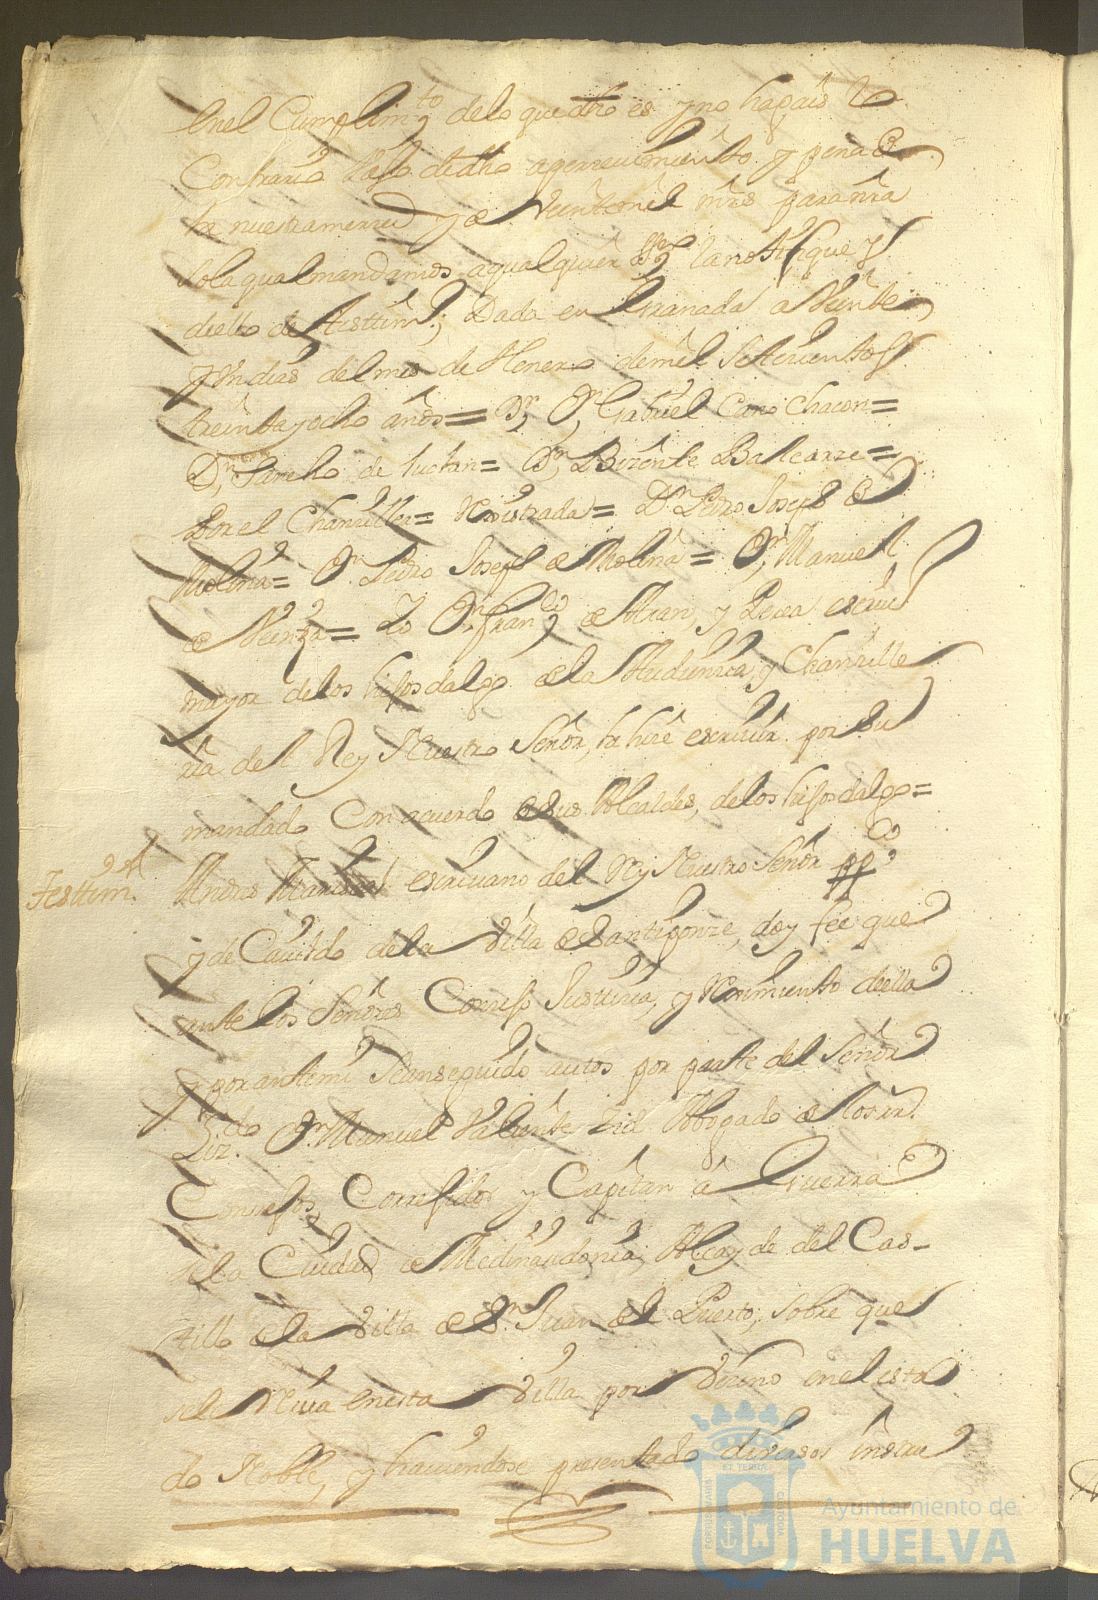 en el Cumplim.to de lo que dho es y no hagais lo
Contrario vajo de dho apercevimiento y pena de
la nuestra merced y de Veinte mil mrs para nra
so la qual mandamos a qualquier essno la notifique y
de ello de Testtim.o; Dada en Granada a Veinte
y Un dias del mes de Henero de mil Setecientos
treinta y ocho años = Dr Dn Gabriel Cano Chacon =
Dn Sancho de Inclan = Dn Bizente Balcarze =
Por el Chanziller = Rexistrada = Dn Pedro Joseph de
Molina = Dn Pedro Joseph de Molina = Dn Manuel
de = Yo Dn Fran.co de Aran, y Perea escriu
mayor de los hijosdalgo de la Audiencia y Chanzille
ria del Rey Nuestro Señor, la hize escriuir por su
mandado Con acuerdo de sus Alcaldes, de los hijosdalgo =
Testtim.o
Andres Mariscal escriuano del Rey Nuestro Señor pp.co
y de Cauildo de la Villa de Santiponze, doy fee que
ante los Señores Consejo Justticia, y Reximiento de ella
y por ante mi se an seguido autos por parte del Señor
Liz.do Dn Manuel Valiente Zid Abogado de los R.s
Consejos, Correxidor y Capitan a Guerra
de la Ciudad de Medinasidonia, Alcayde del Cas-
tillo de la Villa de Sn Juan del Puerto, sobre que
se le Reciua en esta Villa por Vezino en el esta
do Noble, y hauiendose presentado diuersos instru
Ayuntamiento de
HUELVA